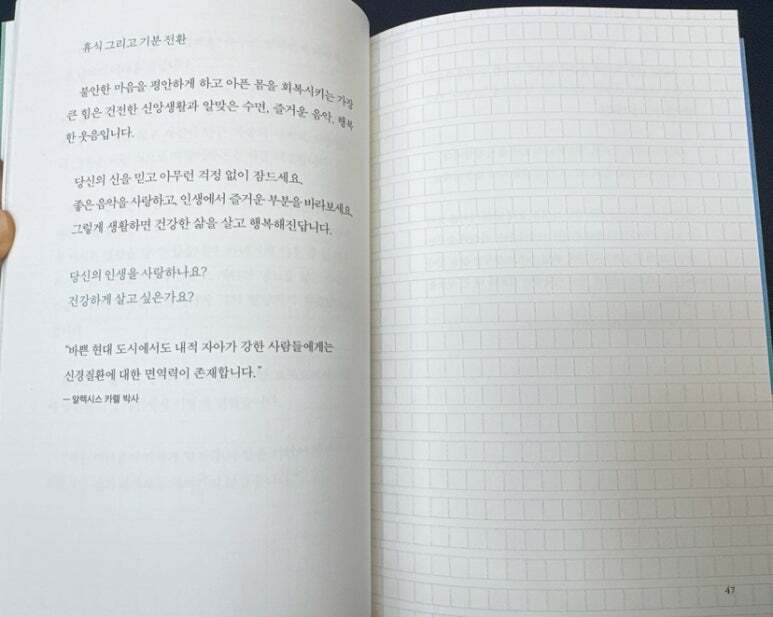 휴식 그리고 기분 전환
불안한 마음을 평안하게 하고 아픈 몸을 회복시키는 가장
큰 힘은 건전한 신앙생활과 알맞은 수면, 즐거운 음악, 행복
한 웃음입니다.
당신의 신을 믿고 아무런 걱정 없이 잠드세요.
좋은 음악을 사랑하고, 인생에서 즐거운 부분을 바라보세요.
그렇게 생활하면 건강한 삶을 살고 행복해진답니다.
당신의 인생을 사랑하나요?
건강하게 살고 싶은가요?
“바쁜 현대 도시에서도 내적 자아가 강한 사람들에게는
신경질환에 대한 면역력이 존재합니다.”
– 알렉시스 카렐 박사
47